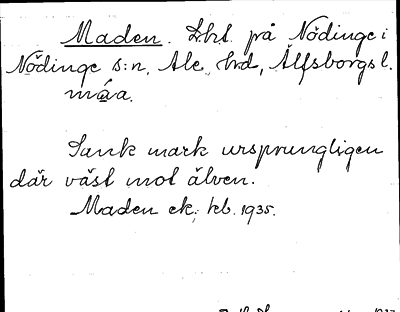 Maden. Lht. på Nödinge i
Nödinge s:n, Ale hd, Älfsborgs l.
måa.
Sank mark ursprungligen
där väst mot älven.
Maden ek. kb. 1935.